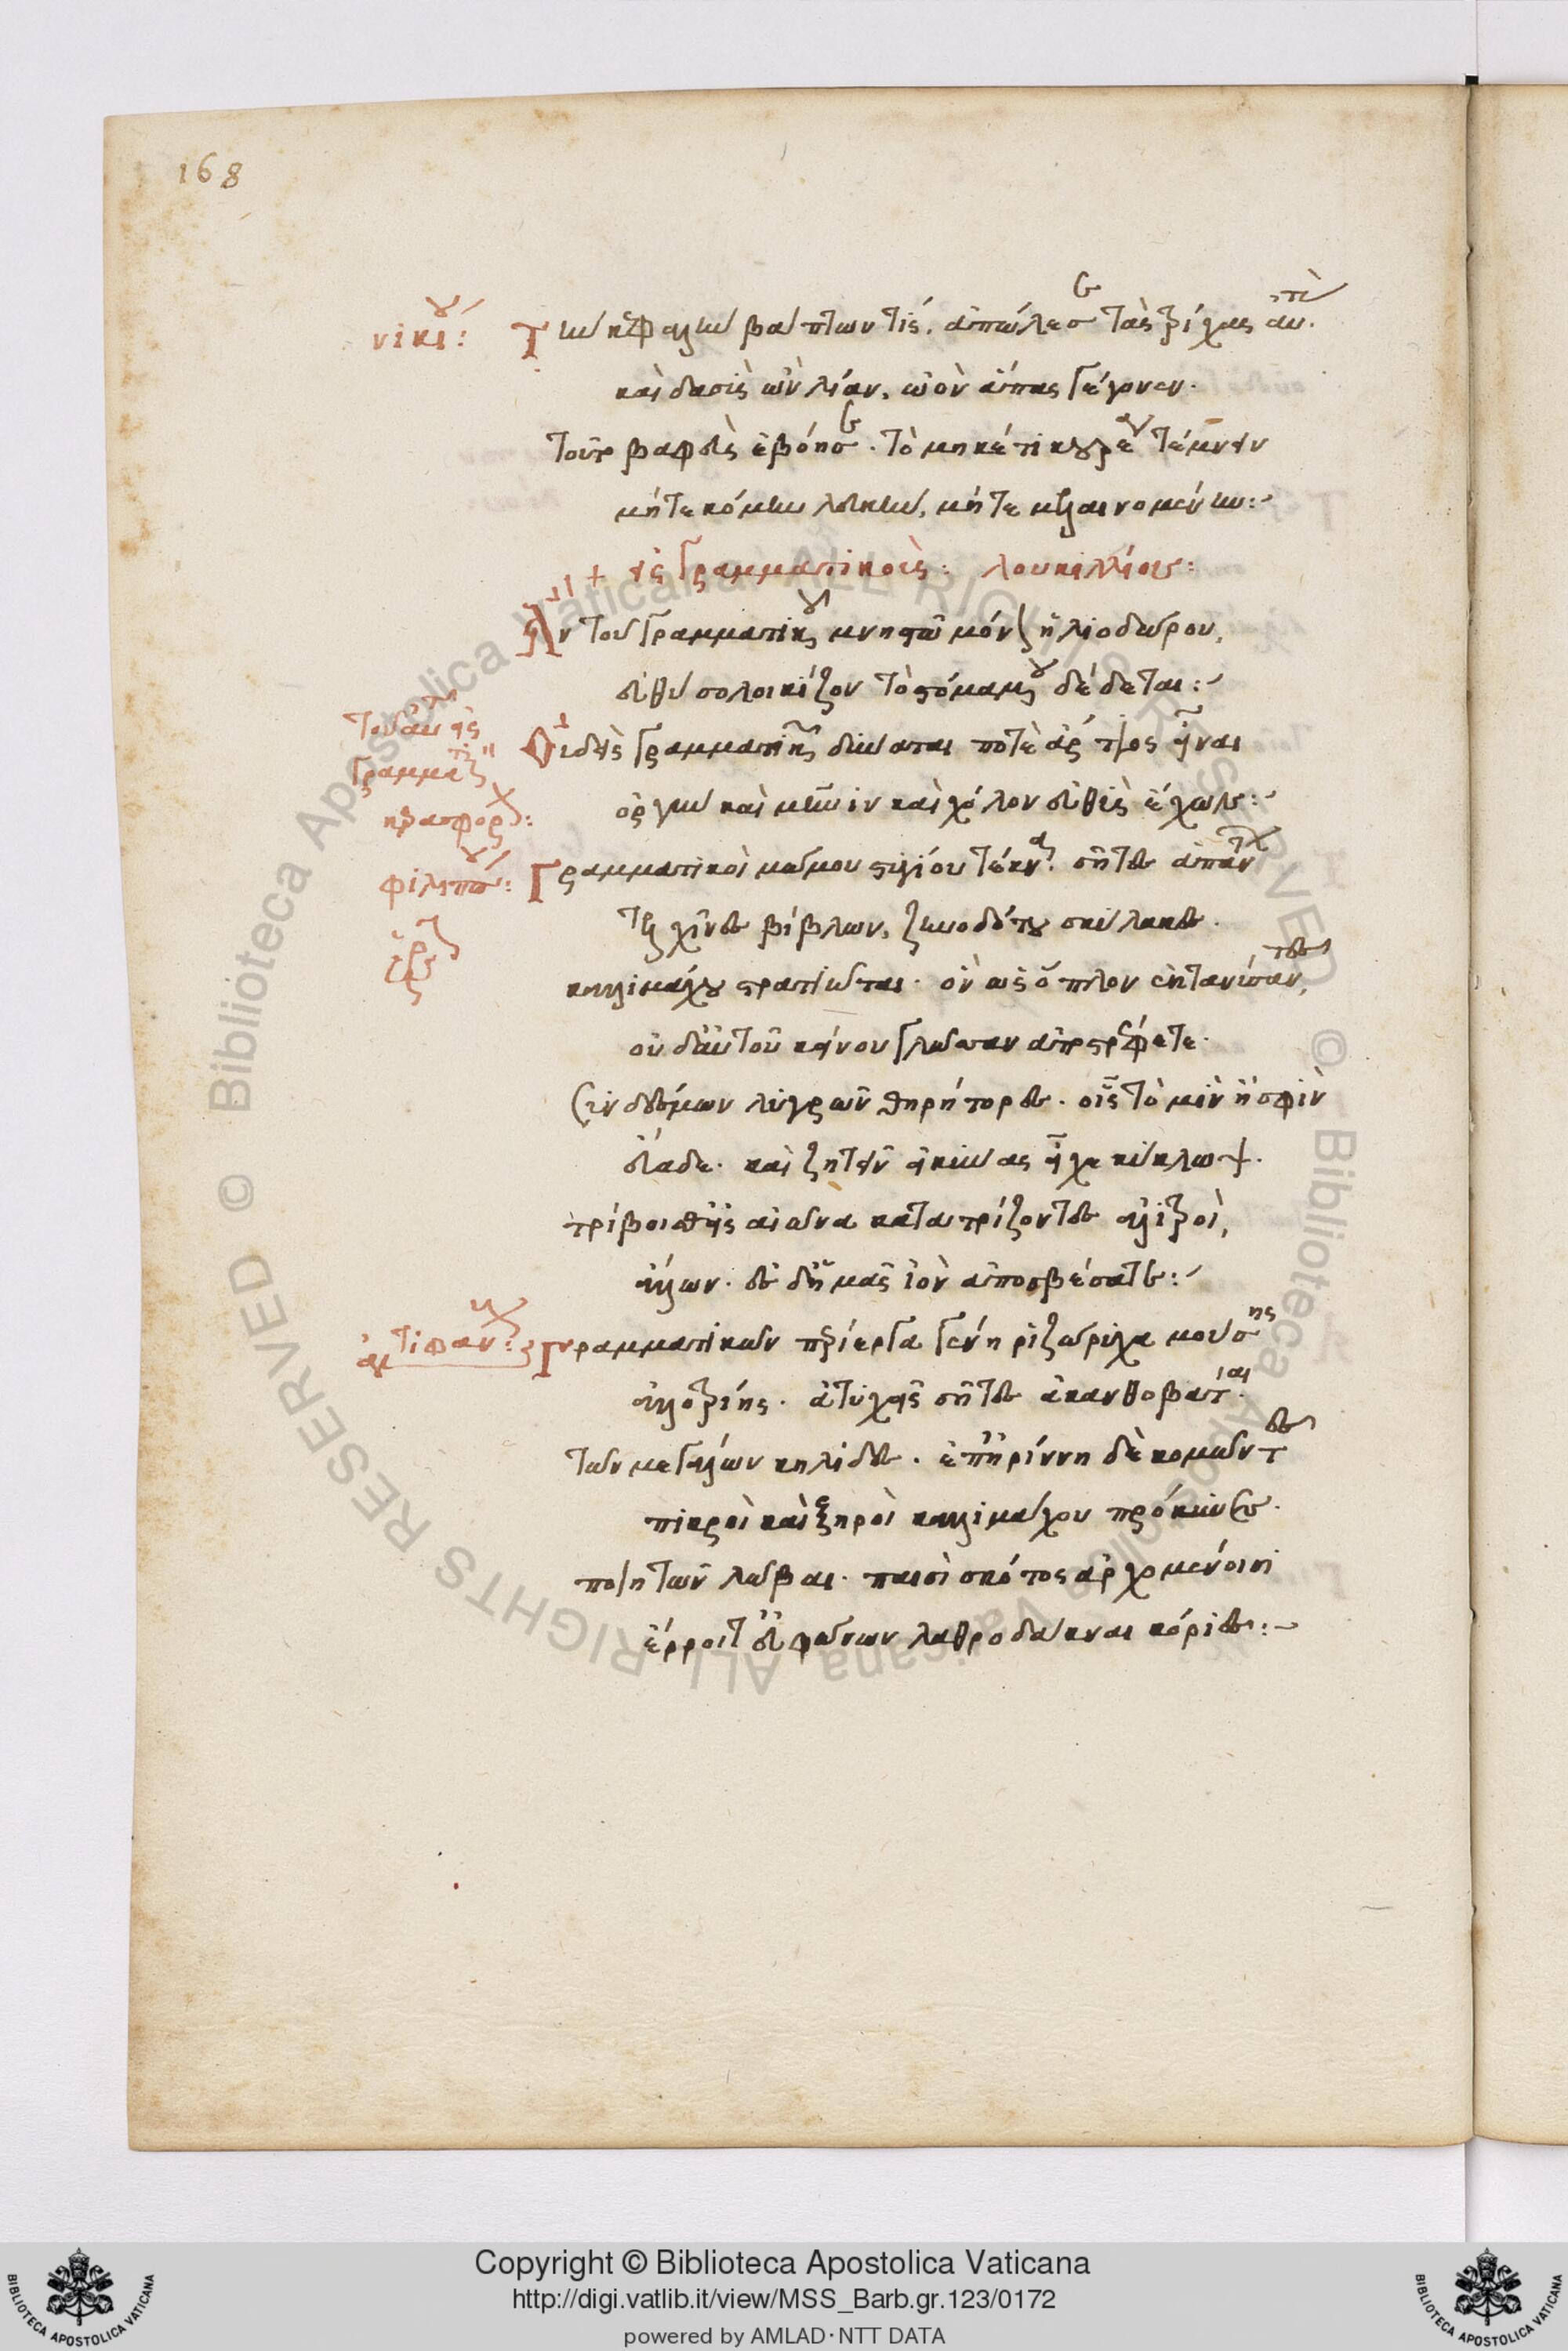 168
νικί:
Τὴν κεφαλὴν βάπτων τίς, ἀπώλεσε τὰς τρίχας αὐτὰς.
καὶ δασὺς ὢν λίαν, ὠὸν ἅπας γέγονεν.
τοῦτο βαφεὺς ἐβόησε. τὸ μηκέτι κουρέα τέμνειν
μήτε κόμην λευκὴν, μήτε μελαινομένην:
+ εἰς γραμματικούς: λουκιλλίου:
Ἂν τοῦ γραμματικοῦ μνησθῶ μόνον ἡλιοδώρου,
εὐθὺ σολοικίζον τὸ στόμα μου δέδεται:
τοῦ αὐτοῦ εἰς
γραμματικ
φιλίππου:
Οὐδεὶς γραμματικῶν δύναται ποτὲ ἄρτιος εἶναι
ὀργὴν καὶ μῆνιν καὶ χόλον εὐθὺς ἔχων:
Γραμματικοὶ μώμου στυγίου τέκνα. σῆτες ἀκανθῶν
τελχῖνες βίβλων, ζηνοδότου σκύλακες.
καλλιμάχου στρατιῶται. ὃν ὡς ὅπλον ἐκτανύσαντες,
οὐδ' αὐτοῦ κείνου γλῶσσαν ἀποστρέφετε.
συνδέσμων λυγρῶν θηρήτορες. οἷς τὸ μὶν ἢ σφὶν
εὔαδε. καὶ ζητεῖν εἰ κύνας εἶχε κύκλωψ.
τρίβοισθ' εἰς αἰῶνα κατατρίζοντες ἀλιτροὶ,
ἄλλων. ἐς δ' ἡμᾶς ἰὸν ἀποσβέσατε:
ἀντιφάνους:
Γραμματικῶν περίεργα γένη ῥιζώρυχα μούσης
ἀλλοτρίης. ἀτυχεῖς σῆτες ἀκανθοβάται.
τῶν μεγάλων κηλῖδες. ἐπ' ἠρίννῃ δὲ κομῶντες
πικροὶ καὶ ξηροὶ καλλιμάχου πρόκυνες.
ποιητῶν λῶβαι. παισὶ σκότος ἀρχομένοισι
ἔρροιτ' εὐφώνων λαθροδάκναι κόριες:
Copyright © Biblioteca Apostolica Vaticana
http://digi.vatlib.it/view/MSS_Barb.gr.123/0172
powered by AMLAD·NTT DATA